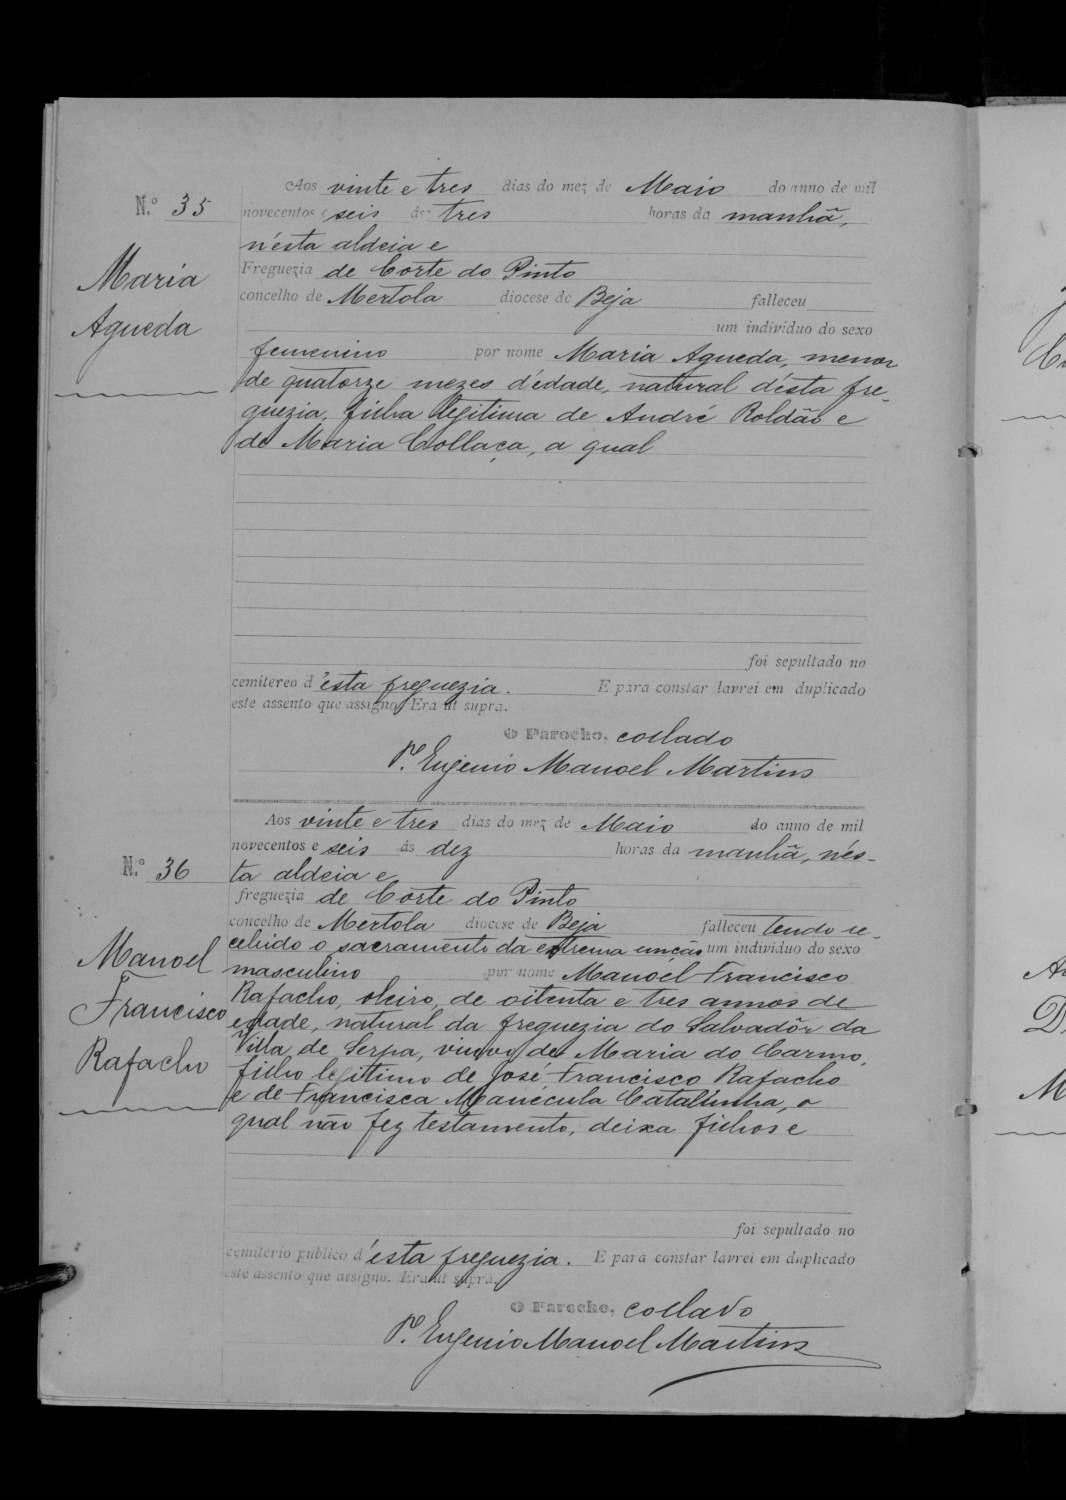 Nº 35
Maria
Agueda
Aos vinte e tres dias do mez de Maio do anno de mil
novecentos e seis ás tres horas da manhã,
n'ésta aldeia e
Freguezia de Corte do Pinto
concelho de Mertola diocese de Beja falleceu
um individuo do sexo
femenino por nome Maria Agueda, menor
de quatorze mezes d'édade, natural d'ésta fre-
guezia, filha legitima de André Roldão e
de Maria Collaça, a qual
foi sepultado no
cemitereo d'ésta freguezia. E para constar lavrei em duplicado
este assento que assigno. Era ut supra.
O Parocho, collado
P.e Eugenio Manoel Martins
Nº 36
Manoel
Francisco
Rafacho
Aos vinte e tres dias do mez de Maio do anno de mil
novecentos e seis ás dez horas da manhã, nés-
ta aldeia e
freguezia de Corte do Pinto
concelho de Mertola diocese de Beja falleceu tendo re-
cebido o sacramento da extrema unção um individuo do sexo
masculino por nome Manoel Francisco
Rafacho, oleiro, de oitenta e tres annos de
edade, natural da freguezia do Salvadôr da
Villa de Serpa, viuvo de Maria do Carmo,
filho legitimo de José Francisco Rafacho
e de Francisca Manécula Catalinha, o
qual não fez testamento, deixa filhos e
foi sepultado no
cemiterio publico d'ésta freguezia. E para constar lavrei em duplicado
este assento que assigno. Era ut supra.
O Parocho, collado
P.e Eugenio Manoel Martins